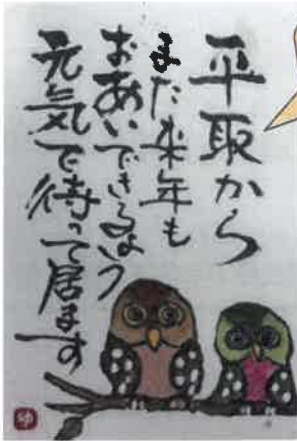 平取から
また来年も
おあいできるよう
元気で待って居ます
ゆ